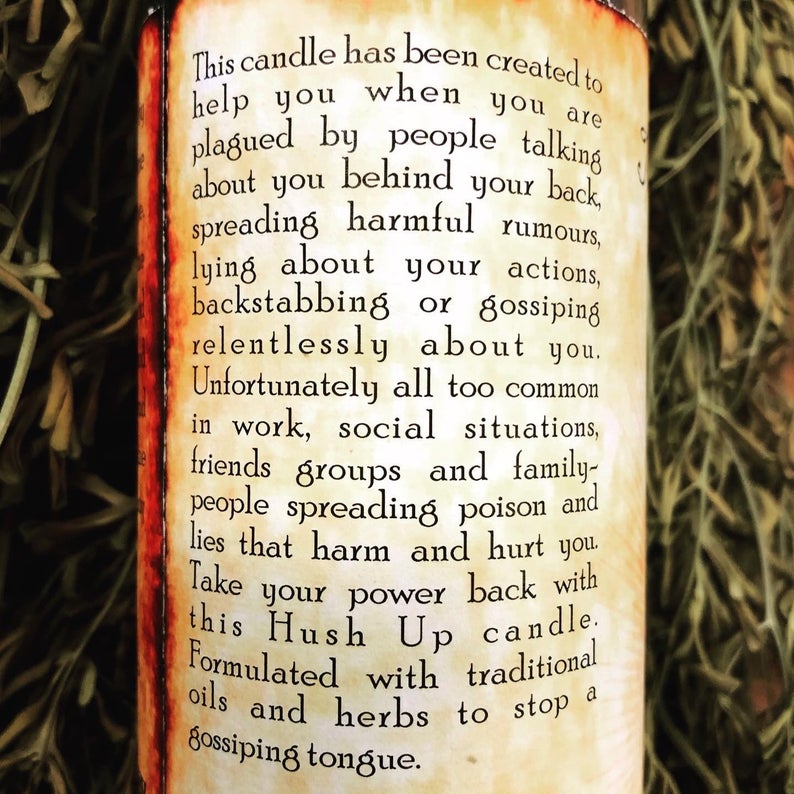 This candle has been created to
help you when you are
plagued by people talking
about you behind your back,
spreading harmful rumours,
lying about your actions,
backstabbing or gossiping
relentlessly about you.
Unfortunately all too common
in work, social situations,
friends groups and family-
people spreading poison and
lies that harm and hurt you.
Take your power back with
this Hush Up candle.
Formulated with traditional
oils and herbs to stop a
gossiping tongue.